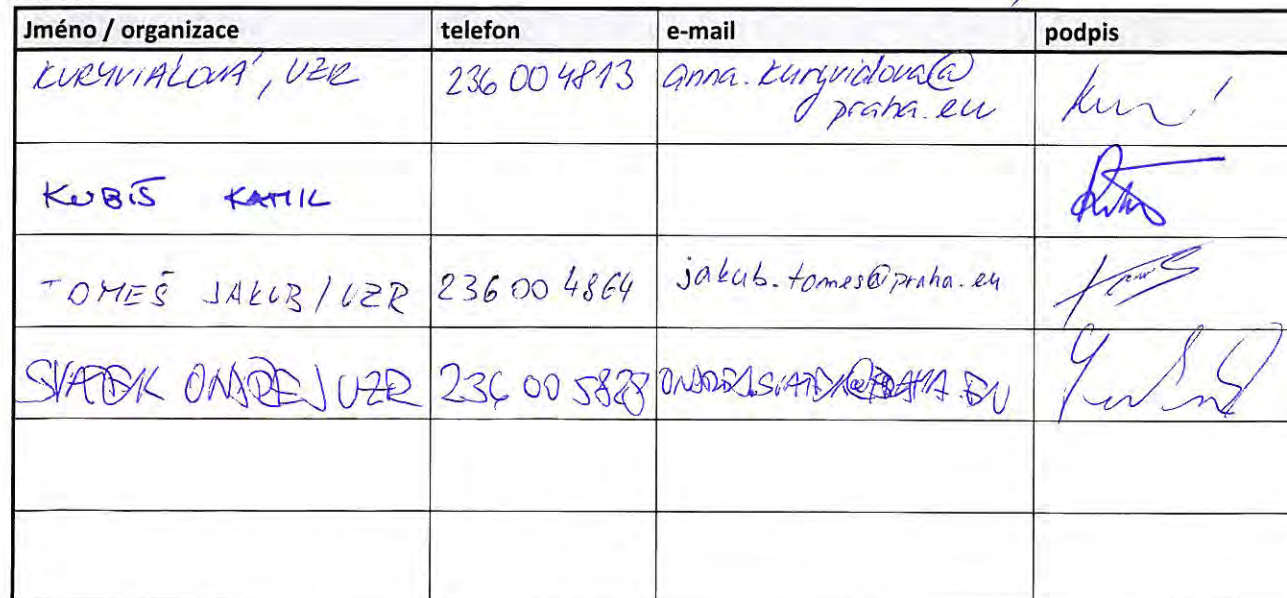 Jméno / organizace telefon e-mail podpis
KURYVIALOVÁ, UZR 236 00 4813 anna.kuryvialova@
praha.eu
KUBIŠ KAMIL
TOMEŠ JAKUB / UZR 236 00 4864 jakub.tomes@praha.eu
ONDŘEJ UZR 236 00 5828